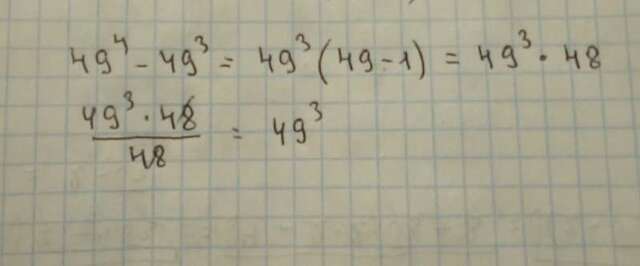 49⁴ - 49³ = 49³ (49 - 1) = 49³ · 48
49³ · 48 / 48 = 49³